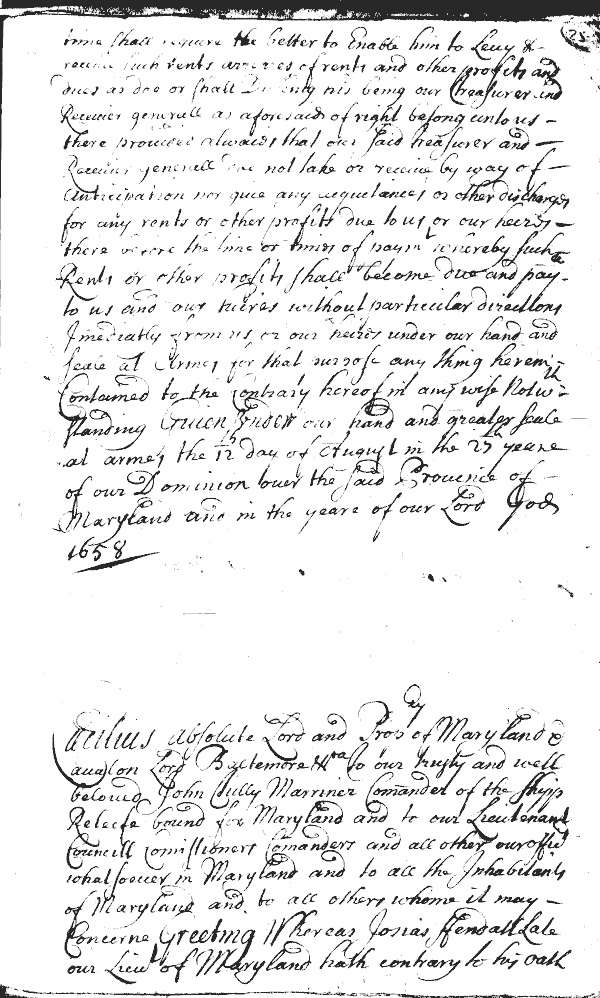 time shall require the better to Enable him to Levy &
receive such rents arreres of rents and other profits and
dues as doe or shall During his being our Treasurer and
Receiver generall as aforesaid of right belong unto us –
there provided alwaies that our said treasurer and –
Receiver generall doe not take or receive by way of –
Anticipation nor give any acquetances or other discharges
for any rents or other profitts due to us or our heires –
there before the time or times of paymt whereby such
Rents or other profits shall become due and pay-
to us and our heires without particular directions
Imediatly from us or our heires under our hand and
seale at Armes for that purpose any thing herein
Contained to the contrary hereof in any wise Notwth-
standing Given Under our hand and greater seale
at armes the 12th day of August in the 27th yeare
of our Dominion over the said Province of –
Maryland and in the yeare of our Lord God
1658
Cacilius absolute Lord and Propry of Maryland &
avalon Lord Baltemore &tra to our trusty and well
beloved John Tully Marriner Comander of the shipp
Releefe bound for Maryland and to our Lieutenant
Councill Comissioners Comanders and all other our offic
whatsoever in Maryland and to all the Inhabitants
of Maryland and to all others whome it may –
Concerne Greeting Whereas Josias ffendall Late
our Lieut of Maryland hath contrary to his oath